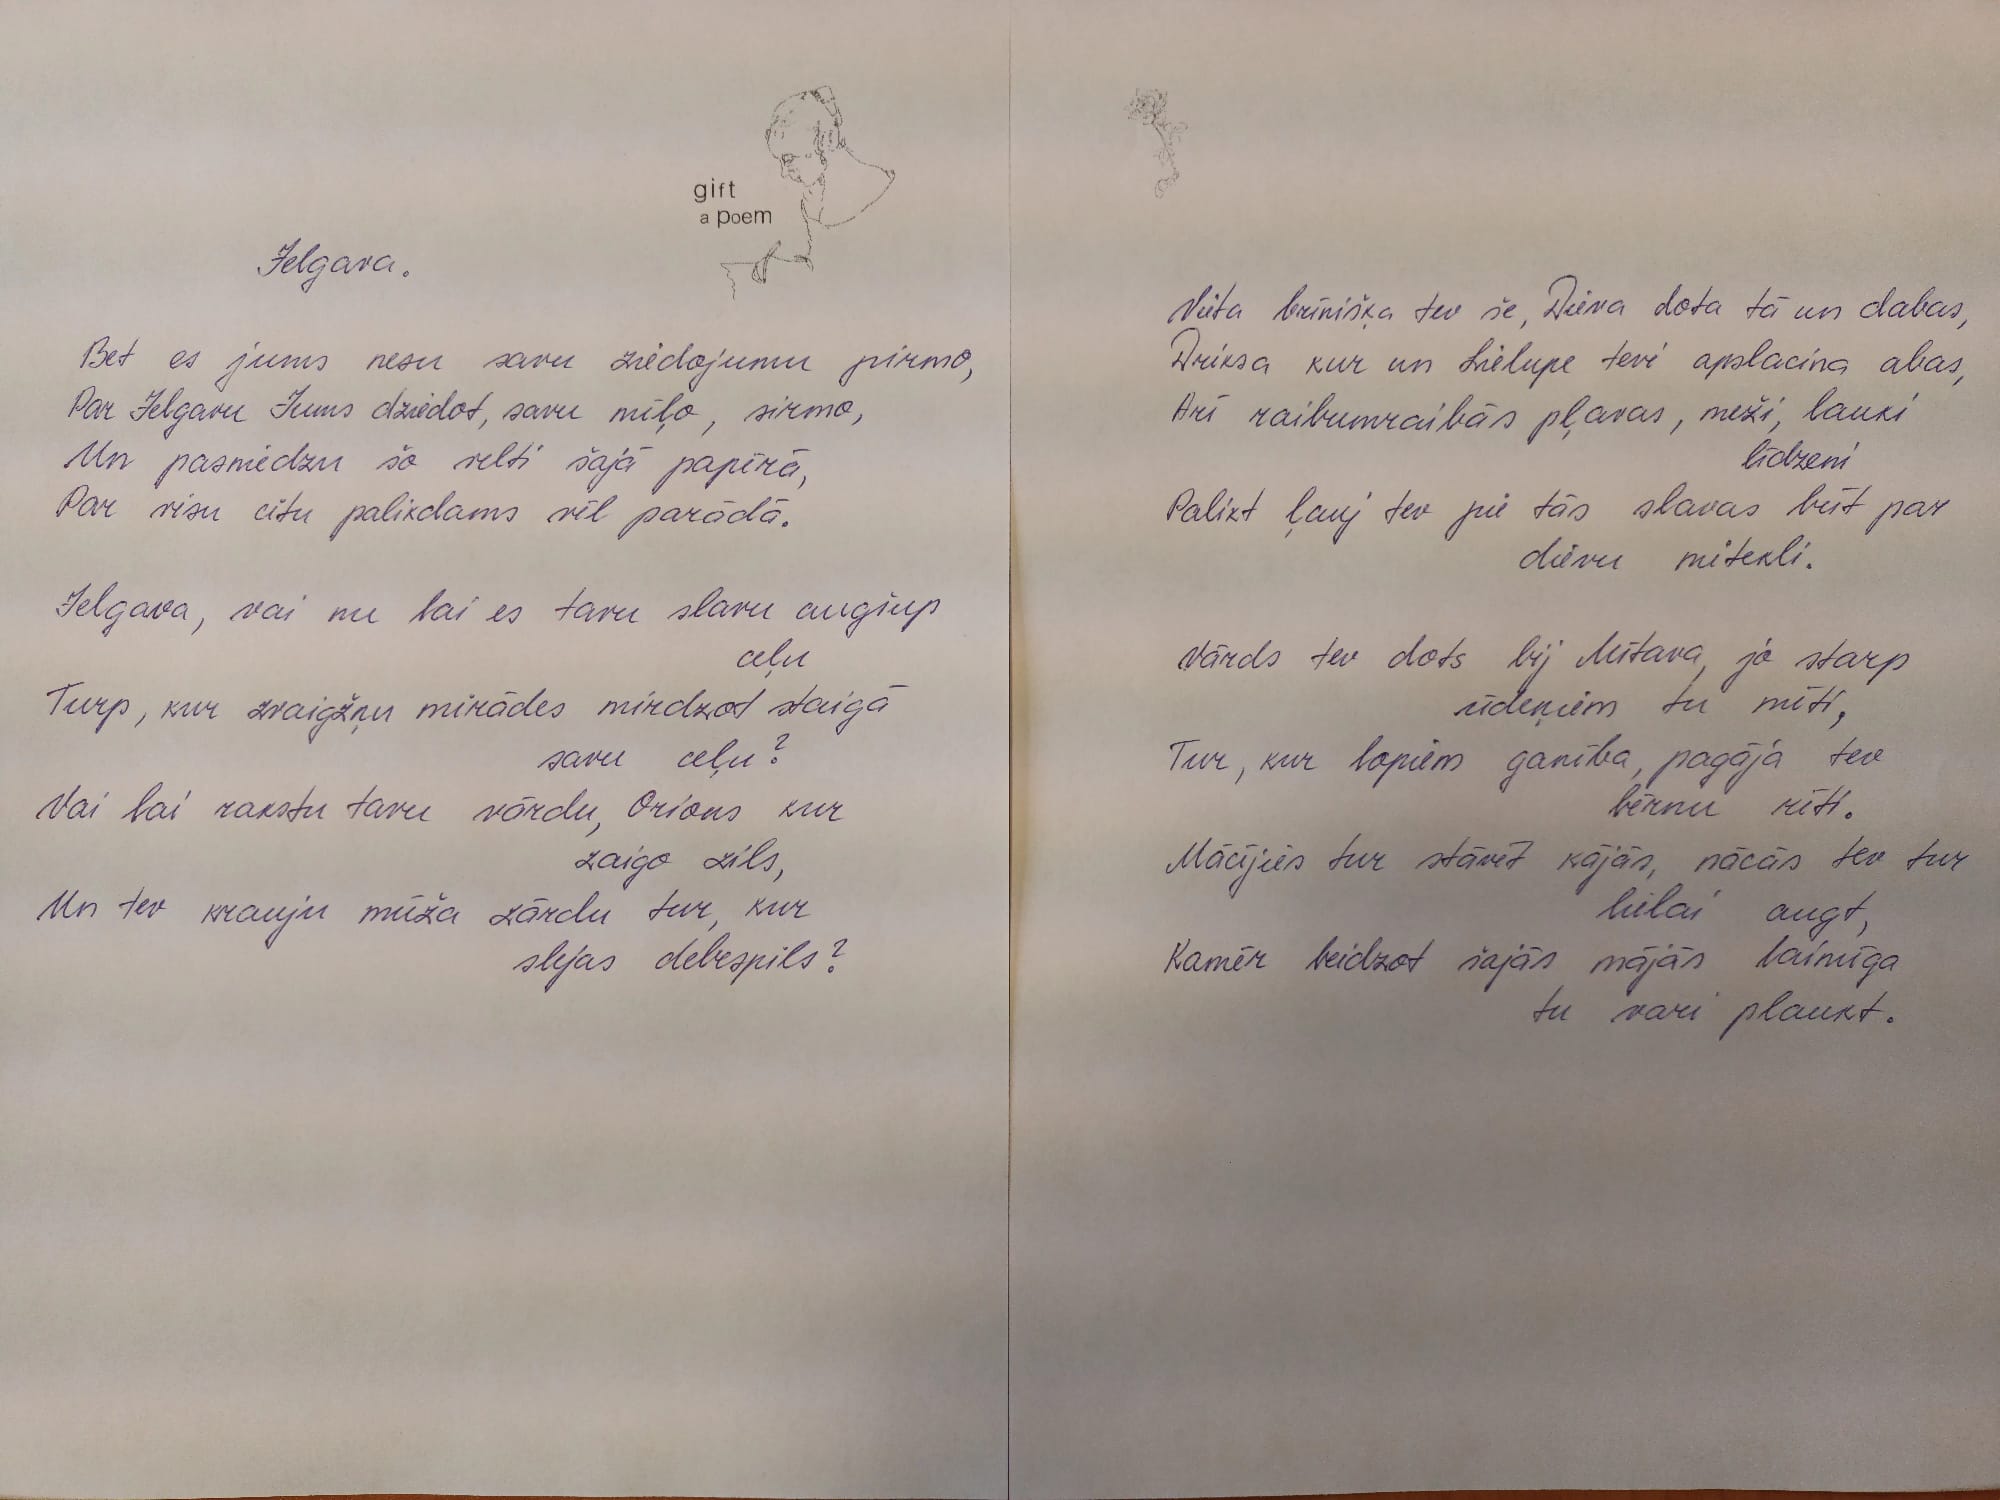 gift
a poem
Jelgava.
Bet es jums nesu savu ziedojumu pirmo,
Par Jelgavu Jums dziedot, savu mīļo, sirmo,
Un pasniedzu šo velti šajā papīrā,
Par visu citu palikdams vēl parādā.
Jelgava, vai nu lai es tavu slavu augšup
ceļu
Turp, kur zvaigžņu miriādes mirdzot staigā
savu ceļu?
Vai lai rakstu tavu vārdu, Orions kur
zaigo zils,
Un tev krauju mūža zārdu tur, kur
slejas debespils?
Vieta brīnišķa tev še, Dieva dota tā un dabas,
Driksa kur un Lielupe tevi apslacina abas,
Arī raibumraibās pļavas, meži, lauki
līdzeni
Palikt ļauj tev pie tās slavas būt par
dievu mitekli.
Vārds tev dots bij Mītava, jo starp
ūdeņiem tu mīti,
Tur, kur lopiem ganība, pagāja tev
bērnu rīti.
Mācījies tur stāvēt kājās, nācās tev tur
lielai augt,
Kamēr beidzot šajās mājās laimīga
tu vari plaukt.